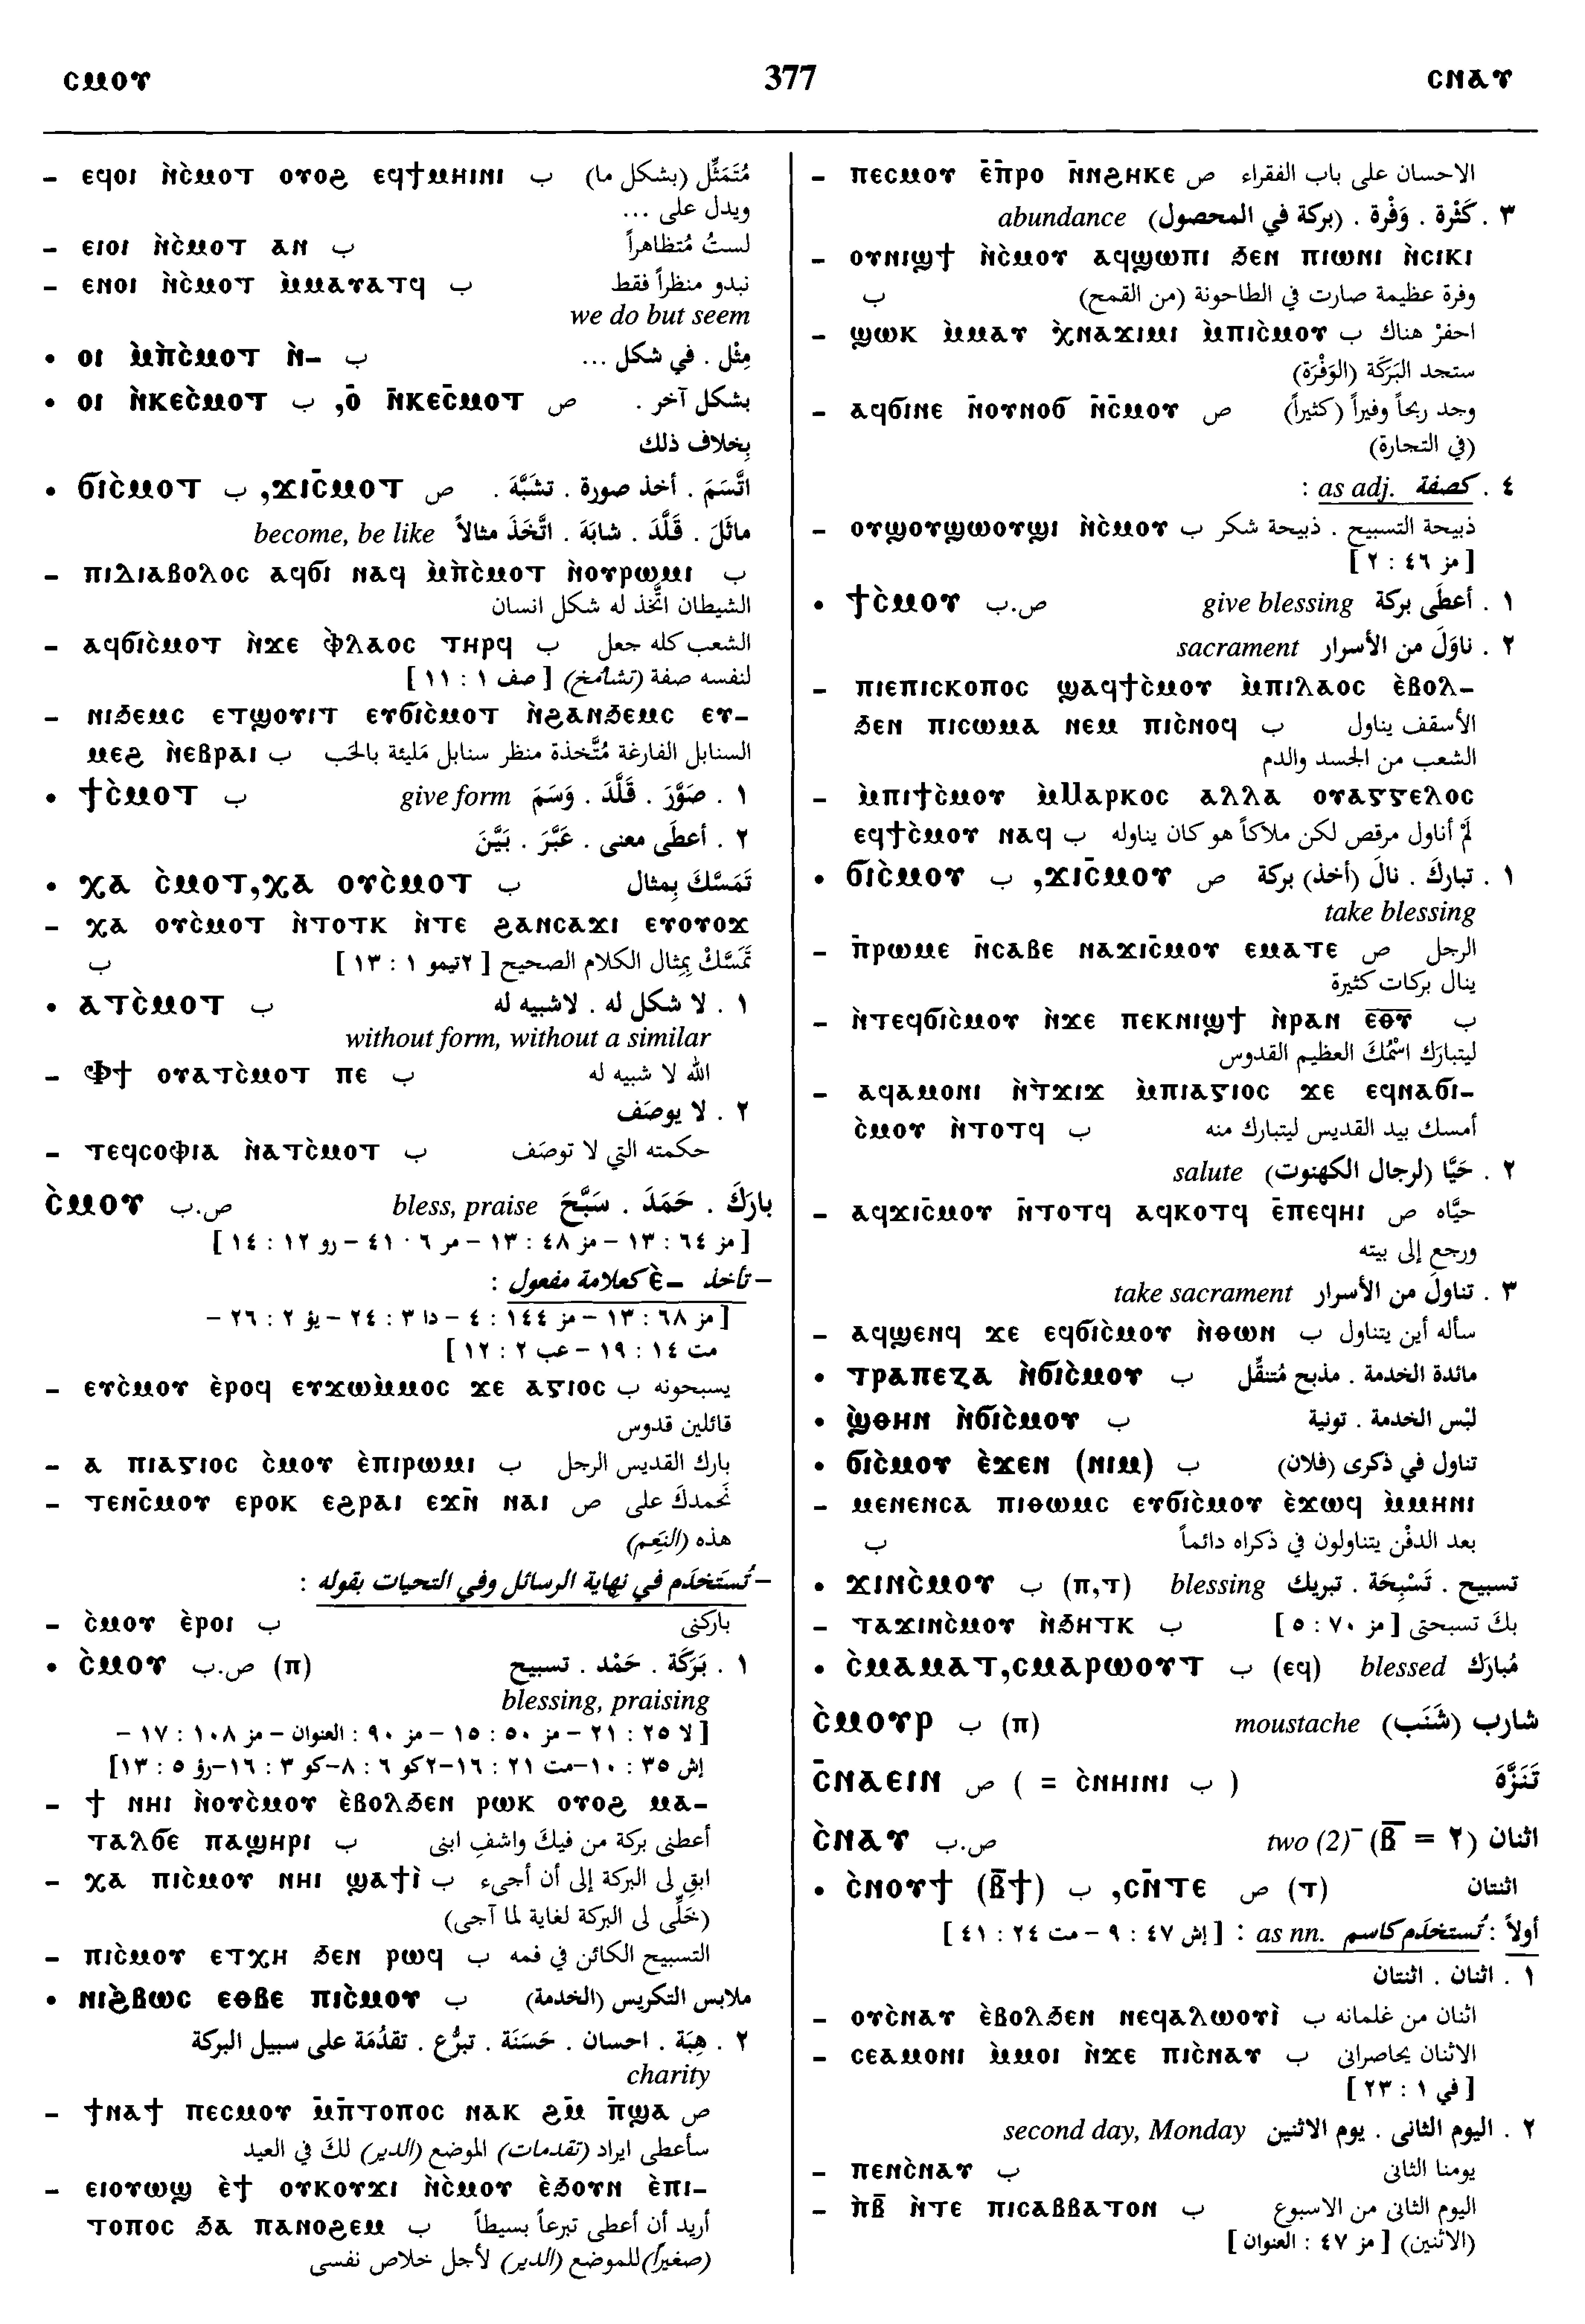 ⲥⲙⲟⲩ 377 ⲥⲛⲁⲩ
– ⲉϥⲟⲓ ⲛ̀ⲥ̀ⲙⲟⲧ ⲟⲩⲟϩ ⲉϥϯⲙⲏⲓⲛⲓ ب مُتَمَثِّل (بشكل ما)
ويدل على ...
– ⲉⲓⲟⲓ ⲛ̀ⲥ̀ⲙⲟⲧ ⲁⲛ ب لستُ مُتظاهراً
– ⲉⲛⲟⲓ ⲛ̀ⲥ̀ⲙⲟⲧ ⲙ̀ⲙⲁⲩⲁⲧϥ ب نبدو منظراً فقط
we do but seem
• ⲟⲓ ⲙ̀ⲡ̀ⲥ̀ⲙⲟⲧ ⲛ̀– ب مِثْل . في شكل ...
• ⲟⲓ ⲛ̀ⲕⲉⲥ̀ⲙⲟⲧ ب ,ⲟ̄ ⲛ̄ⲕⲉⲥ̄ⲙⲟⲧ ص بشكل آخر .
بِخلاف ذلك
• ϭⲓⲥ̀ⲙⲟⲧ ب ,ϫⲓⲥ̄ⲙⲟⲧ ص اتَّسَمَ . أخذ صورة . تشبَّهَ .
ماثَلَ . قَلَّدَ . شابَهَ . اتَّخَذَ مثالاً become, be like
– ⲡⲓⲇⲓⲁⲃⲟⲗⲟⲥ ⲁϥϭⲓ ⲛⲁϥ ⲙ̀ⲡ̀ⲥⲙⲟⲧ ⲛ̀ⲟⲩⲣⲱⲙⲓ ب
الشيطان اتَّخذ له شكل انسان
– ⲁϥϭⲓⲥ̀ⲙⲟⲧ ⲛ̀ϫⲉ ⲫ̀ⲗⲁⲟⲥ ⲧⲏⲣϥ ب الشعب كله جعل
لنفسه صفة (تشامُخ) [ صف ١ : ١١ ]
– ⲛⲓϧⲉⲙⲥ ⲉⲧϣⲟⲩⲓⲧ ⲉⲩϭⲓⲥ̀ⲙⲟⲧ ⲛ̀ϩⲁⲛϧⲉⲙⲥ ⲉⲩ–
ⲙⲉϩ ⲛ̀ⲉⲃⲣⲁⲓ ب السنابل الفارغة مُتَّخذة منظر سنابل مَليئة بالحَب
• ϯⲥ̀ⲙⲟⲧ ب ١ . صَوَّرَ . قَلَّدَ . وَسَمَ give form
٢ . أعطَى معنى . عَبَّرَ . بَيَّنَ
• ⲭⲁ ⲥ̀ⲙⲟⲧ,ⲭⲁ ⲟⲩⲥ̀ⲙⲟⲧ ب تَمَسَّكَ بِمثال
– ⲭⲁ ⲟⲩⲥ̀ⲙⲟⲧ ⲛ̀ⲧⲟⲧⲕ ⲛ̀ⲧⲉ ϩⲁⲛⲥⲁϫⲓ ⲉⲩⲟⲩⲟϫ
تَمَسَّكْ بِمثال الكلام الصحيح [ ٢تيمو ١ : ١٣ ] ب
• ⲁⲧⲥ̀ⲙⲟⲧ ب ١ . لا شكل له . لاشبيه له
without form, without a similar
– Ⲫϯ ⲟⲩⲁⲧⲥ̀ⲙⲟⲧ ⲡⲉ ب الله لا شبيه له
٢ . لا يوصَف
– ⲧⲉϥⲥⲟⲫⲓⲁ ⲛ̀ⲁⲧⲥ̀ⲙⲟⲧ ب حكمته التي لا توصَف
ⲥ̀ⲙⲟⲩ ص.ب بارَكَ . حَمَدَ . سَبَّحَ bless, praise
[ مز ٦٤ : ١٣ – مز ٤٨ : ١٣ – مر ٦ : ٤١ – رو ١٢ : ١٤ ]
– تأخذ –ⲉ̀ كعلامة مفعول :
[ مز ٦٨ : ١٣ – مز ١٤٤ : ٤ – دا ٣ : ٢٤ – يؤ ٢ : ٢٦ –
مت ١٤ : ١٩ – عب ٢ : ١٢ ]
– ⲉⲩⲥ̀ⲙⲟⲩ ⲉ̀ⲣⲟϥ ⲉⲩϫⲱⲙ̀ⲙⲟⲥ ϫⲉ ⲁⲅⲓⲟⲥ ب يسبحونه
قائلين قدوس
– ⲁ ⲡⲓⲁⲅⲓⲟⲥ ⲥ̀ⲙⲟⲩ ⲉ̀ⲡⲓⲣⲱⲙⲓ ب بارك القديس الرجل
– ⲧⲉⲛⲥ̄ⲙⲟⲩ ⲉⲣⲟⲕ ⲉϩⲣⲁⲓ ⲉϫⲛ̄ ⲛⲁⲓ ص نَحمدكَ على
هذه (النِعَم)
– تُستَخدَم في نهاية الرسائل وفي التحيات بقوله :
– ⲥ̀ⲙⲟⲩ ⲉ̀ⲣⲟⲓ ب باركنى
• ⲥ̀ⲙⲟⲩ ص.ب (ⲡ) ١ . بَرَكَة . حَمْد . تسبيح
blessing, praising
[ لا ٢٥ : ٢١ – مز ٥٠ : ١٥ – مز ٩٠ : العنوان – مز ١٠٨ : ١٧ –
إش ٣٥ : ١٠–مت ٢١ : ١٦–٢كو ٦ : ٨–كو ٣ : ١٦–رؤ ٥ : ١٣]
– ϯ ⲛⲏⲓ ⲛ̀ⲟⲩⲥ̀ⲙⲟⲩ ⲉ̀ⲃⲟⲗϧⲉⲛ ⲣⲱⲕ ⲟⲩⲟϩ ⲙⲁ–
ⲧⲁⲗϭⲉ ⲡⲁϣⲏⲣⲓ ب أعطنى بركة من فيكَ واشفِ ابنى
– ⲭⲁ ⲡⲓⲥ̀ⲙⲟⲩ ⲛⲏⲓ ϣⲁϯⲓ̀ ب ابقِ لى البركة إلى أن أجىء
(خَلِّى لى البركة لغاية لما آجى)
– ⲡⲓⲥ̀ⲙⲟⲩ ⲉⲧⲭⲏ ϧⲉⲛ ⲣⲱϥ ب التسبيح الكائن في فمه
• ⲛⲓϩⲃⲱⲥ ⲉⲑⲃⲉ ⲡⲓⲥ̀ⲙⲟⲩ ب ملابس التكريس (الخدمة)
٢ . هِبَة . احسان . حَسَنَة . تبرُّع . تقدُمَة على سبيل البركة
charity
– ϯⲛⲁϯ ⲡⲉⲥⲙⲟⲩ ⲙ̄ⲡ̄ⲧⲟⲡⲟⲥ ⲛⲁⲕ ϩⲙ̄ ⲡ̄ϣⲁ ص
سأعطى ايراد (تقدمات) الموضع (الدير) لكَ في العيد
– ⲉⲓⲟⲩⲱϣ ⲉ̀ϯ ⲟⲩⲕⲟⲩϫⲓ ⲛ̀ⲥ̀ⲙⲟⲩ ⲉ̀ϧⲟⲩⲛ ⲉ̀ⲡⲓ–
ⲧⲟⲡⲟⲥ ϧⲁ ⲡⲁⲛⲟϩⲉⲙ ب أريد أن أعطى تبرعاً بسيطاً
(صغيراً)للموضع (الدير) لأجل خلاص نفسى
– ⲡⲉⲥⲙⲟⲩ ⲉ̄ⲡ̄ⲣⲟ ⲛ̄ⲛϩⲏⲕⲉ ص الاحسان على باب الفقراء
٣ . كَثْرة . وَفْرة . (بركة في المحصول) abundance
– ⲟⲩⲛⲓϣϯ ⲛ̀ⲥ̀ⲙⲟⲩ ⲁϥϣⲱⲡⲓ ϧⲉⲛ ⲡⲓⲱⲛⲓ ⲛ̀ⲥⲓⲕⲓ
وفرة عظيمة صارت في الطاحونة (من القمح) ب
– ϣⲱⲕ ⲙ̀ⲙⲁⲩ ⲭ̀ⲛⲁϫⲓⲙⲓ ⲙ̀ⲡⲓⲥ̀ⲙⲟⲩ ب احفرْ هناك
ستجد البَرَكَة (الوَفْرَة)
– ⲁϥϭⲓⲛⲉ ⲛ̄ⲟⲩⲛⲟϭ ⲛ̄ⲥ̄ⲙⲟⲩ ص وجد ربحاً وفيراً (كثيراً)
(في التجارة)
٤ . كصفة as adj. :
– ⲟⲩϣⲟⲩϣⲱⲟⲩϣⲓ ⲛ̀ⲥ̀ⲙⲟⲩ ب ذبيحة التسبيح . ذبيحة شكر
[ مز ٤٦ : ٢ ]
• ϯⲥ̀ⲙⲟⲩ ص.ب ١ . أعطَى بركة give blessing
٢ . ناوَلَ من الأسرار sacrament
– ⲡⲓⲉⲡⲓⲥⲕⲟⲡⲟⲥ ϣⲁϥϯⲥ̀ⲙⲟⲩ ⲙ̀ⲡⲓⲗⲁⲟⲥ ⲉ̀ⲃⲟⲗ–
ϧⲉⲛ ⲡⲓⲥⲱⲙⲁ ⲛⲉⲙ ⲡⲓⲥ̀ⲛⲟϥ ب الأسقف يناول
الشعب من الجسد والدم
– ⲙ̀ⲡⲓϯⲥ̀ⲙⲟⲩ ⲙ̀Ⲙⲁⲣⲕⲟⲥ ⲁⲗⲗⲁ ⲟⲩⲁⲅⲅⲉⲗⲟⲥ
ⲉϥϯⲥ̀ⲙⲟⲩ ⲛⲁϥ ب لَمْ أناول مرقص لكن ملاكاً هو كان يناوله
• ϭⲓⲥ̀ⲙⲟⲩ ب ,ϫⲓⲥ̄ⲙⲟⲩ ص ١ . تبارَكَ . نالَ (أخذ) بركة
take blessing
– ⲡ̄ⲣⲱⲙⲉ ⲛ̄ⲥⲁⲃⲉ ⲛⲁϫⲓⲥ̄ⲙⲟⲩ ⲉⲙⲁⲧⲉ ص الرجل
ينال بركات كثيرة
– ⲛ̀ⲧⲉϥϭⲓⲥ̀ⲙⲟⲩ ⲛ̀ϫⲉ ⲡⲉⲕⲛⲓϣϯ ⲛ̀ⲣⲁⲛ ⲉ̅ⲑ̅ⲩ̅ ب
ليتبارَك اسْمُكَ العظيم القدوس
– ⲁϥⲁⲙⲟⲛⲓ ⲛ̀ⲧ̀ϫⲓϫ ⲙ̀ⲡⲓⲁⲅⲓⲟⲥ ϫⲉ ⲉϥⲛⲁϭⲓ–
ⲥ̀ⲙⲟⲩ ⲛ̀ⲧⲟⲧϥ ب أمسك بيد القديس ليتبارك منه
٢ . حَيَّا (لرجال الكهنوت) salute
– ⲁϥϫⲓⲥ̄ⲙⲟⲩ ⲛ̄ⲧⲟⲧϥ ⲁϥⲕⲟⲧϥ ⲉ̄ⲡⲉϥⲏⲓ ص حيَّاه
ورجع إلى بيته
٣ . تناولَ من الأسرار take sacrament
– ⲁϥϣⲉⲛϥ ϫⲉ ⲉϥϭⲓⲥ̀ⲙⲟⲩ ⲛ̀ⲑⲱⲛ ب سأله أين يتناول
• ⲧⲣⲁⲡⲉⲍⲁ ⲛ̀ϭⲓⲥ̀ⲙⲟⲩ ب مائدة الخدمة . مذبح مُتنقِّل
• ϣ̀ⲑⲏⲛ ⲛ̀ϭⲓⲥ̀ⲙⲟⲩ ب لبْس الخدمة . تونية
• ϭⲓⲥ̀ⲙⲟⲩ ⲉ̀ϫⲉⲛ (ⲛⲓⲙ) ب تناول في ذكرى (فلان)
– ⲙⲉⲛⲉⲛⲥⲁ ⲡⲓⲑⲱⲙⲥ ⲉⲩϭⲓⲥ̀ⲙⲟⲩ ⲉ̀ϫⲱϥ ⲙ̀ⲙⲏⲛⲓ
بعد الدفْن يتناولون في ذكراه دائماً ب
• ϫⲓⲛⲥ̀ⲙⲟⲩ ب (ⲡ,ⲧ) تسبيح . تَسْبِحَة . تبريك blessing
– ⲧⲁϫⲓⲛⲥ̀ⲙⲟⲩ ⲛ̀ϧⲏⲧⲕ ب بكَ تسبحتى [ مز ٧٠ : ٥ ]
• ⲥ̀ⲙⲁⲙⲁⲧ,ⲥⲙⲁⲣⲱⲟⲩⲧ ب (ⲉϥ) مُبارَك blessed
ⲥ̀ⲙⲟⲩⲣ ب (ⲡ) شارب (شَنَب) moustache
ⲥ̄ⲛⲁⲉⲓⲛ ص ( = ⲥ̀ⲛⲏⲓⲛⲓ ب ) تَنَزَّهَ
ⲥ̀ⲛⲁⲩ ص.ب اثنان (٢ = ⲃ̅) two (2)
• ⲥ̀ⲛⲟⲩϯ (ⲃ̅ϯ) ب ,ⲥⲛ̄ⲧⲉ ص (ⲧ) اثنتان
أولاً : تُستخدَم كاسم as nn. : [ إش ٤٧ : ٩ – مت ٢٤ : ٤١ ]
١ . اثنان . اثنتان
– ⲟⲩⲥ̀ⲛⲁⲩ ⲉ̀ⲃⲟⲗϧⲉⲛ ⲛⲉϥⲁⲗⲱⲟⲩⲓ̀ ب اثنان من غلمانه
– ⲥⲉⲁⲙⲟⲛⲓ ⲙ̀ⲙⲟⲓ ⲛ̀ϫⲉ ⲡⲓⲥ̀ⲛⲁⲩ ب الاثنان يحاصرانى
[ في ١ : ٢٣ ]
٢ . اليوم الثانى . يوم الاثنين second day, Monday
– ⲡⲉⲛⲥ̀ⲛⲁⲩ ب يومنا الثانى
– ⲡ̀ⲃ̅ ⲛ̀ⲧⲉ ⲡⲓⲥⲁⲃⲃⲁⲧⲟⲛ ب اليوم الثانى من الاسبوع
(الاثنين) [ مز ٤٧ : العنوان ]